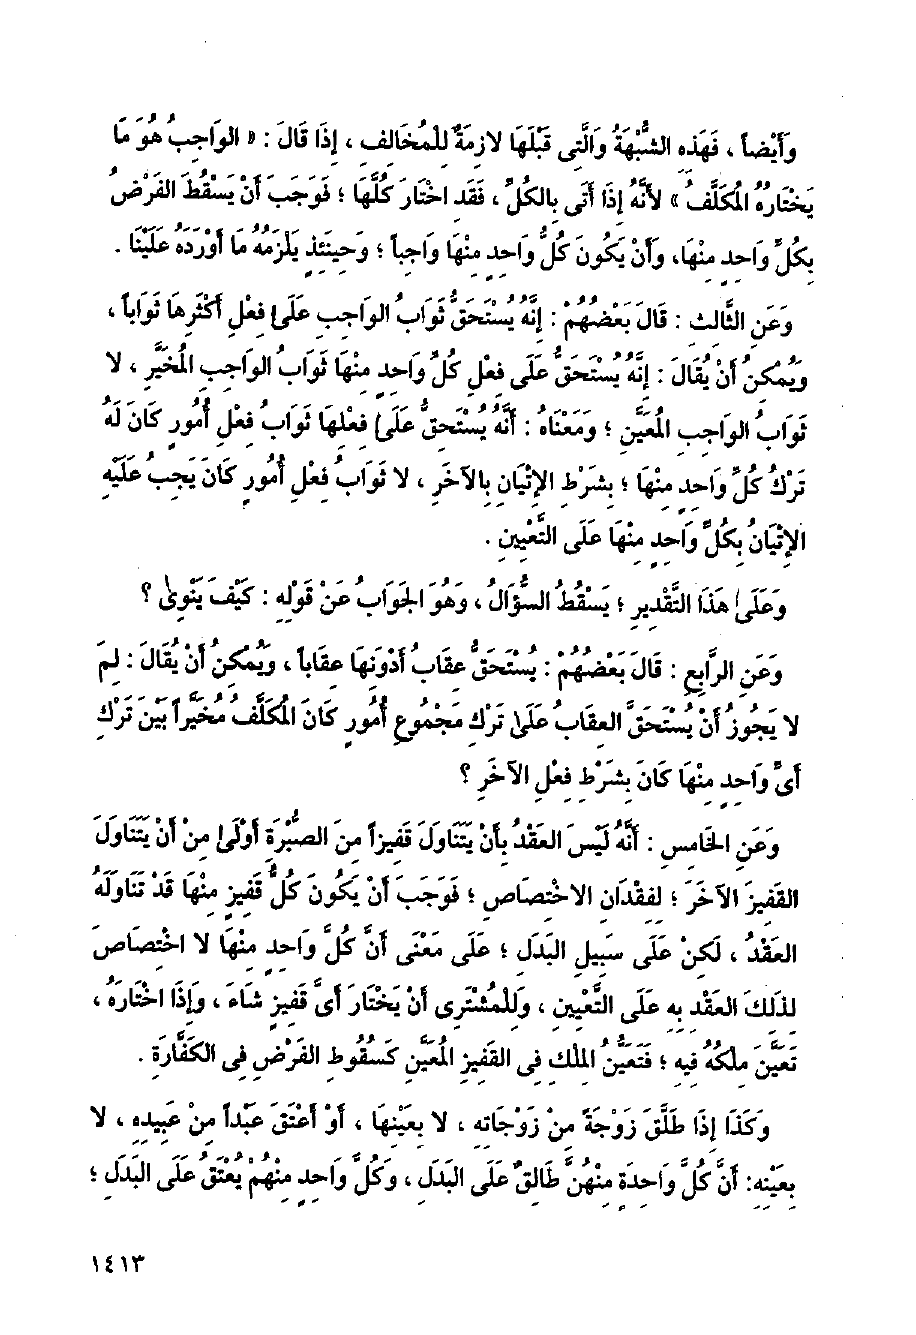 وَأَيْضاً ، فَهَذِهِ الشُّبْهَةُ وَالَّتِى قَبْلَهَا لازِمَةٌ للْمُخَالِفِ ، إِذَا قَالَ : « الوَاجِبُ هُوَ مَا
يَخْتَارُهُ الْمُكَلَّفُ » لأَنَّهُ إِذَا أَتَى بِالكُلِّ ، فَقَد اخْتَارَ كُلَّهَا ؛ فَوَجَبَ أَنْ يَسْقُطَ الفَرْضُ
بِكُلِّ وَاحِدٍ مِنْهَا، وَأَنْ يَكُونَ كُلُّ وَاحِدٍ مِنْهَا وَاجِباً ؛ وَحِينَئِذٍ يَلْزَمُهُ مَا أَوْرَدَهُ عَلَيْنَا .
وَعَنِ الثَّالِثِ : قَالَ بَعْضُهُمْ : إِنَّهُ يُسْتَحَقُّ ثَوَابُ الوَاجِبِ عَلَىٰ فِعْلِ أَكْثَرِهَا ثَوَاباً ،
وَيُمْكِنُ أَنْ يُقَالَ : إِنَّهُ يُسْتَحَقُّ عَلَى فِعْلِ كُلِّ وَاحِدٍ مِنْهَا ثَوَابُ الوَاجِبِ الْمُخَيَّرِ ، لا
ثَوَابُ الوَاجِبِ الْمُعَيَّنِ ؛ وَمَعْنَاهُ : أَنَّهُ يُسْتَحَقُّ عَلَىٰ فِعْلِهَا ثَوَابُ فِعْلِ أُمُورٍ كَانَ لَهُ
تَرْكُ كُلِّ وَاحِدٍ مِنْهَا ؛ بِشَرْطِ الإِتْيَانِ بِالآخَرِ ، لا ثَوَابُ فِعْلِ أُمُورٍ كَانَ يَجِبُ عَلَيْهِ
الإِتْيَانُ بِكُلِّ وَاحِدٍ مِنْهَا عَلَى التَّعْيِينِ .
وَعَلَىٰ هَذَا التَّقْدِيرِ ؛ يَسْقُطُ السُّؤَالُ ، وَهُوَ الجَوَابُ عَنْ قَوْلِهِ : كَيْفَ يَنْوِىٰ ؟
وَعَنِ الرَّابِعِ : قَالَ بَعْضُهُمْ : يُسْتَحَقُّ عِقَابُ أَدْوَنِهَا عِقَاباً ، وَيُمْكِنُ أَنْ يُقَالَ : لِمَ
لا يَجُوزُ أَنْ يُسْتَحَقَّ العِقَابُ عَلَىٰ تَرْكِ مَجْمُوعِ أُمُورٍ كَانَ الْمُكَلَّفُ مُخَيَّراً بَيْنَ تَرْكِ
أَىِّ وَاحِدٍ مِنْهَا كَانَ بِشَرْطِ فِعْلِ الآخَرِ ؟
وَعَنِ الخَامِسِ : أَنَّهُ لَيْسَ العَقْدُ بِأَنْ يَتَنَاوَلَ قَفِيزاً مِنَ الصُّبْرَةِ أَوْلَىٰ مِنْ أَنْ يَتَنَاوَلَ
القَفِيزَ الآخَرَ ؛ لفِقْدَانِ الاخْتِصَاصِ ؛ فَوَجَبَ أَنْ يَكُونَ كُلُّ قَفِيزٍ مِنْهَا قَدْ تَنَاوَلَهُ
العَقْدُ ، لَكِنْ عَلَى سَبِيلِ البَدَلِ ؛ عَلَى مَعْنَى أَنَّ كُلَّ وَاحِدٍ مِنْهَا لا اخْتِصَاصَ
لذَلكَ العَقْدِ بِهِ عَلَى التَّعْيِينِ ، وَللْمُشْتَرِى أَنْ يَخْتَارَ أَىَّ قَفِيزٍ شَاءَ ، وَإِذَا اخْتَارَهُ ،
تَعَيَّنَ مِلْكُهُ فِيهِ ؛ فَتَعَيُّنُ الْمِلْكِ فِى القَفِيزِ الْمُعَيَّنِ كَسُقُوطِ الفَرْضِ فِى الكَفَّارَةِ .
وَكَذَا إِذَا طَلَّقَ زَوْجَةً مِنْ زَوْجَاتِهِ ، لا بِعَيْنِهَا ، أَوْ أَعْتَقَ عَبْداً مِنْ عَبِيدِهِ ، لا
بِعَيْنِهِ: أَنَّ كُلَّ وَاحِدَةٍ مِنْهُنَّ طَالِقٌ عَلَى البَدَلِ ، وَكُلَّ وَاحِدٍ مِنْهُمْ يُعْتَقُ عَلَى البَدَلِ ؛
١٤١٣